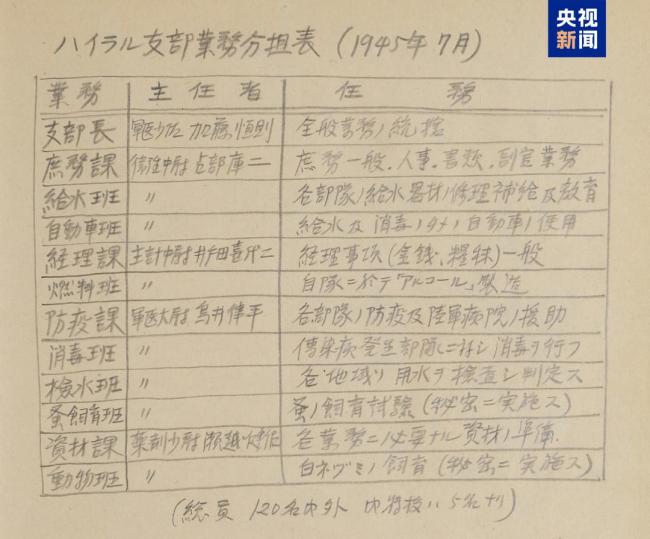 央视
新闻
ハイラル支部業務分担表 (1945年7月)
業務 主任者 任務
支部長 軍医少佐 加藤恒則 全般業務ノ統括
庶務課 衛生中尉 占部庫二 庶務一般、人事、書類、副官業務
給水班 〃 各部隊ノ給水器材ノ修理補給及教育
自動車班 〃 給水及消毒ノタメノ自動車ノ使用
経理課 主計中尉 喜代二 経理事項(金銭、糧秣)一般
燃料班 〃 自隊ニ於テ「アルコール」製造
防疫課 軍医大尉 鳥井偉平 各部隊ノ防疫及陸軍病院ノ援助
消毒班 〃 傳染病発生部隊ニ対シ消毒ヲ行フ
検水班 〃 各地域ノ用水ヲ検査シ判定ス
蚤飼育班 〃 蚤ノ飼育試験(秘密ニ実施ス)
資材課 薬剤少尉 瀬越健作 各業務ニ必要ナル資材ノ準備.
動物班 〃 白ネヅミノ飼育(秘密ニ実施ス)
(総員 120名内外 内将校ハ5名ナリ)